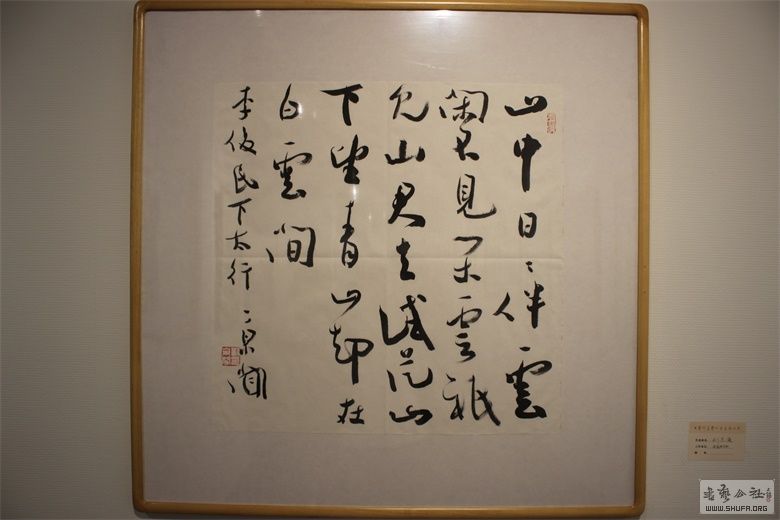 山中日日伴雲
閑不見閑雲祇
見山君去試從山
下望青山却在
白雲間
李俊民下太行
書藝公社
WWW.SHUFA.ORG